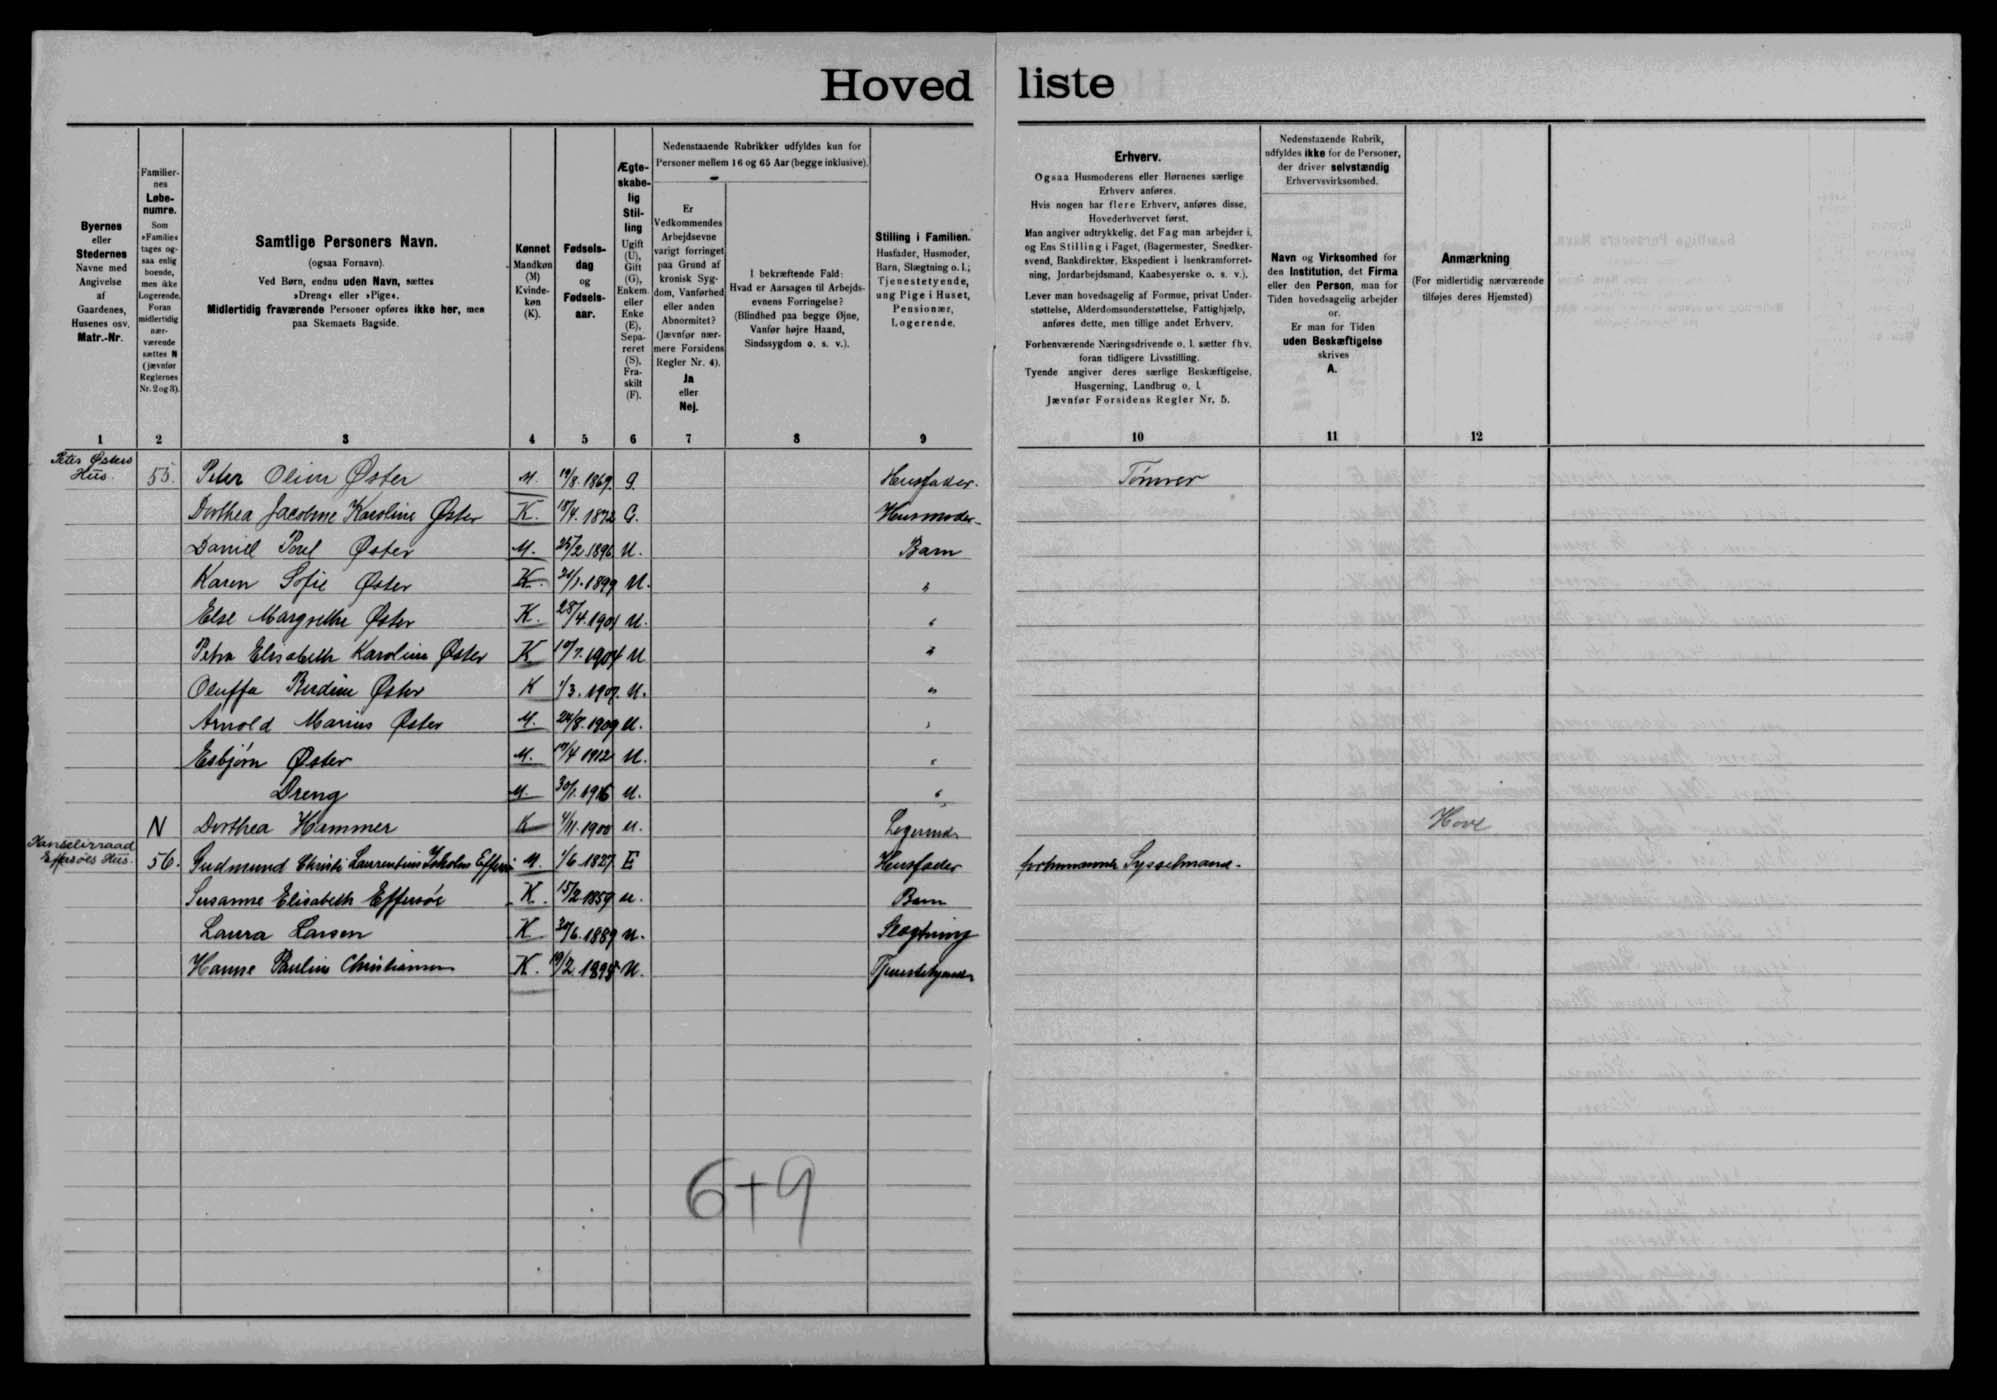 Hoved liste
Byernes eller Stedernes Navne med Angivelse af Gaardenes, Husenes osv. Matr.-Nr.
Familiernes Løbenumre. Som »Familie« tages ogsaa enlig boende, men ikke Logerende. Foran midlertidig nærværende sættes N (jævnfør Reglernes Nr. 2 og 3).
Samtlige Personers Navn.
(ogsaa Fornavn).
Ved Børn, endnu uden Navn, sættes »Dreng« eller »Pige«.
Midlertidig fraværende Personer opføres ikke her, men paa Skemaets Bagside.
Kønnet Mandkøn (M) Kvindekøn (K).
Fødselsdag og Fødselsaar.
Ægteskabelig Stilling Ugift (U), Gift (G), Enkem. eller Enke (E), Separeret (S), Fraskilt (F).
Nedenstaaende Rubrikker udfyldes kun for Personer mellem 16 og 65 Aar (begge inklusive).
Er Vedkommendes Arbejdsevne varigt forringet paa Grund af kronisk Sygdom, Vanførhed eller anden Abnormitet? (Jævnfør nærmere Forsidens Regler Nr. 4). Ja eller Nej.
I bekræftende Fald: Hvad er Aarsagen til Arbejdsevnens Forringelse? (Blindhed paa begge Øjne, Vanfør højre Haand, Sindssygdom o. s. v.).
Stilling i Familien. Husfader, Husmoder, Barn, Slægtning o. l.; Tjenestetyende, ung Pige i Huset, Pensionær, Logerende.
Erhverv.
Ogsaa Husmoderens eller Børnenes særlige Erhverv anføres.
Hvis nogen har flere Erhverv, anføres disse, Hovederhvervet først.
Man angiver udtrykkelig, det Fag man arbejder i, og Ens Stilling i Faget, (Bagermester, Snedkersvend, Bankdirektør, Ekspedient i Isenkramforretning, Jordarbejdsmand, Kaabesyerske o. s. v.).
Lever man hovedsagelig af Formue, privat Understøttelse, Alderdomsunderstøttelse, Fattighjælp, anføres dette, men tillige andet Erhverv.
Forhenværende Næringsdrivende o. l. sætter fhv. foran tidligere Livsstilling.
Tyende angiver deres særlige Beskæftigelse, Husgerning, Landbrug o. l.
Jævnfør Forsidens Regler Nr. 5.
Nedenstaaende Rubrik, udfyldes ikke for de Personer, der driver selvstændig Erhvervsvirksomhed.
Navn og Virksomhed for den Institution, det Firma eller den Person, man for Tiden hovedsagelig arbejder or.
Er man for Tiden uden Beskæftigelse skrives A.
Anmærkning
(For midlertidig nærværende tilføjes deres Hjemsted)
1 2 3 4 5 6 7 8 9 10 11 12
Peter Østers Hus. 55. Peter Olivur Øster M. 19/8. 1869. G. Husfader. Tømrer
Dorthea Jacobine Karoline Øster K. 18/4. 1872 G. Husmoder
Daniel Poul Øster M. 25/2 1896 U. Barn
Karen Sofie Øster K. 1899 U. "
Else Margrethe Øster K. 28/4. 1901 U. "
Petra Elisabeth Karoline Øster K 1904 U "
Oluffa Øster K 1/3. 1907. U. "
Arnold Marius Øster M. 24/8. 1909 U. "
Esbjørn Øster M. 1912 U. "
Dreng M. 30/1. 1916 U. "
N Dorthea Hammer K 1/11. 1900 U. Logerende Hove
Kanselliraad Effersøes Hus. 56. Gudmund Christi Laurentius Effersø M. 1/6. 1827. E Husfader forhenværende Sysselmand.
Susanne Elisabeth Effersøe K. 15/2 1859 U. Barn
Laura Larsen K 1889 U. Slægtning
Hanne Pauline Christiansen K. 19/2. 1895 U. Tjenestetyende
6+9